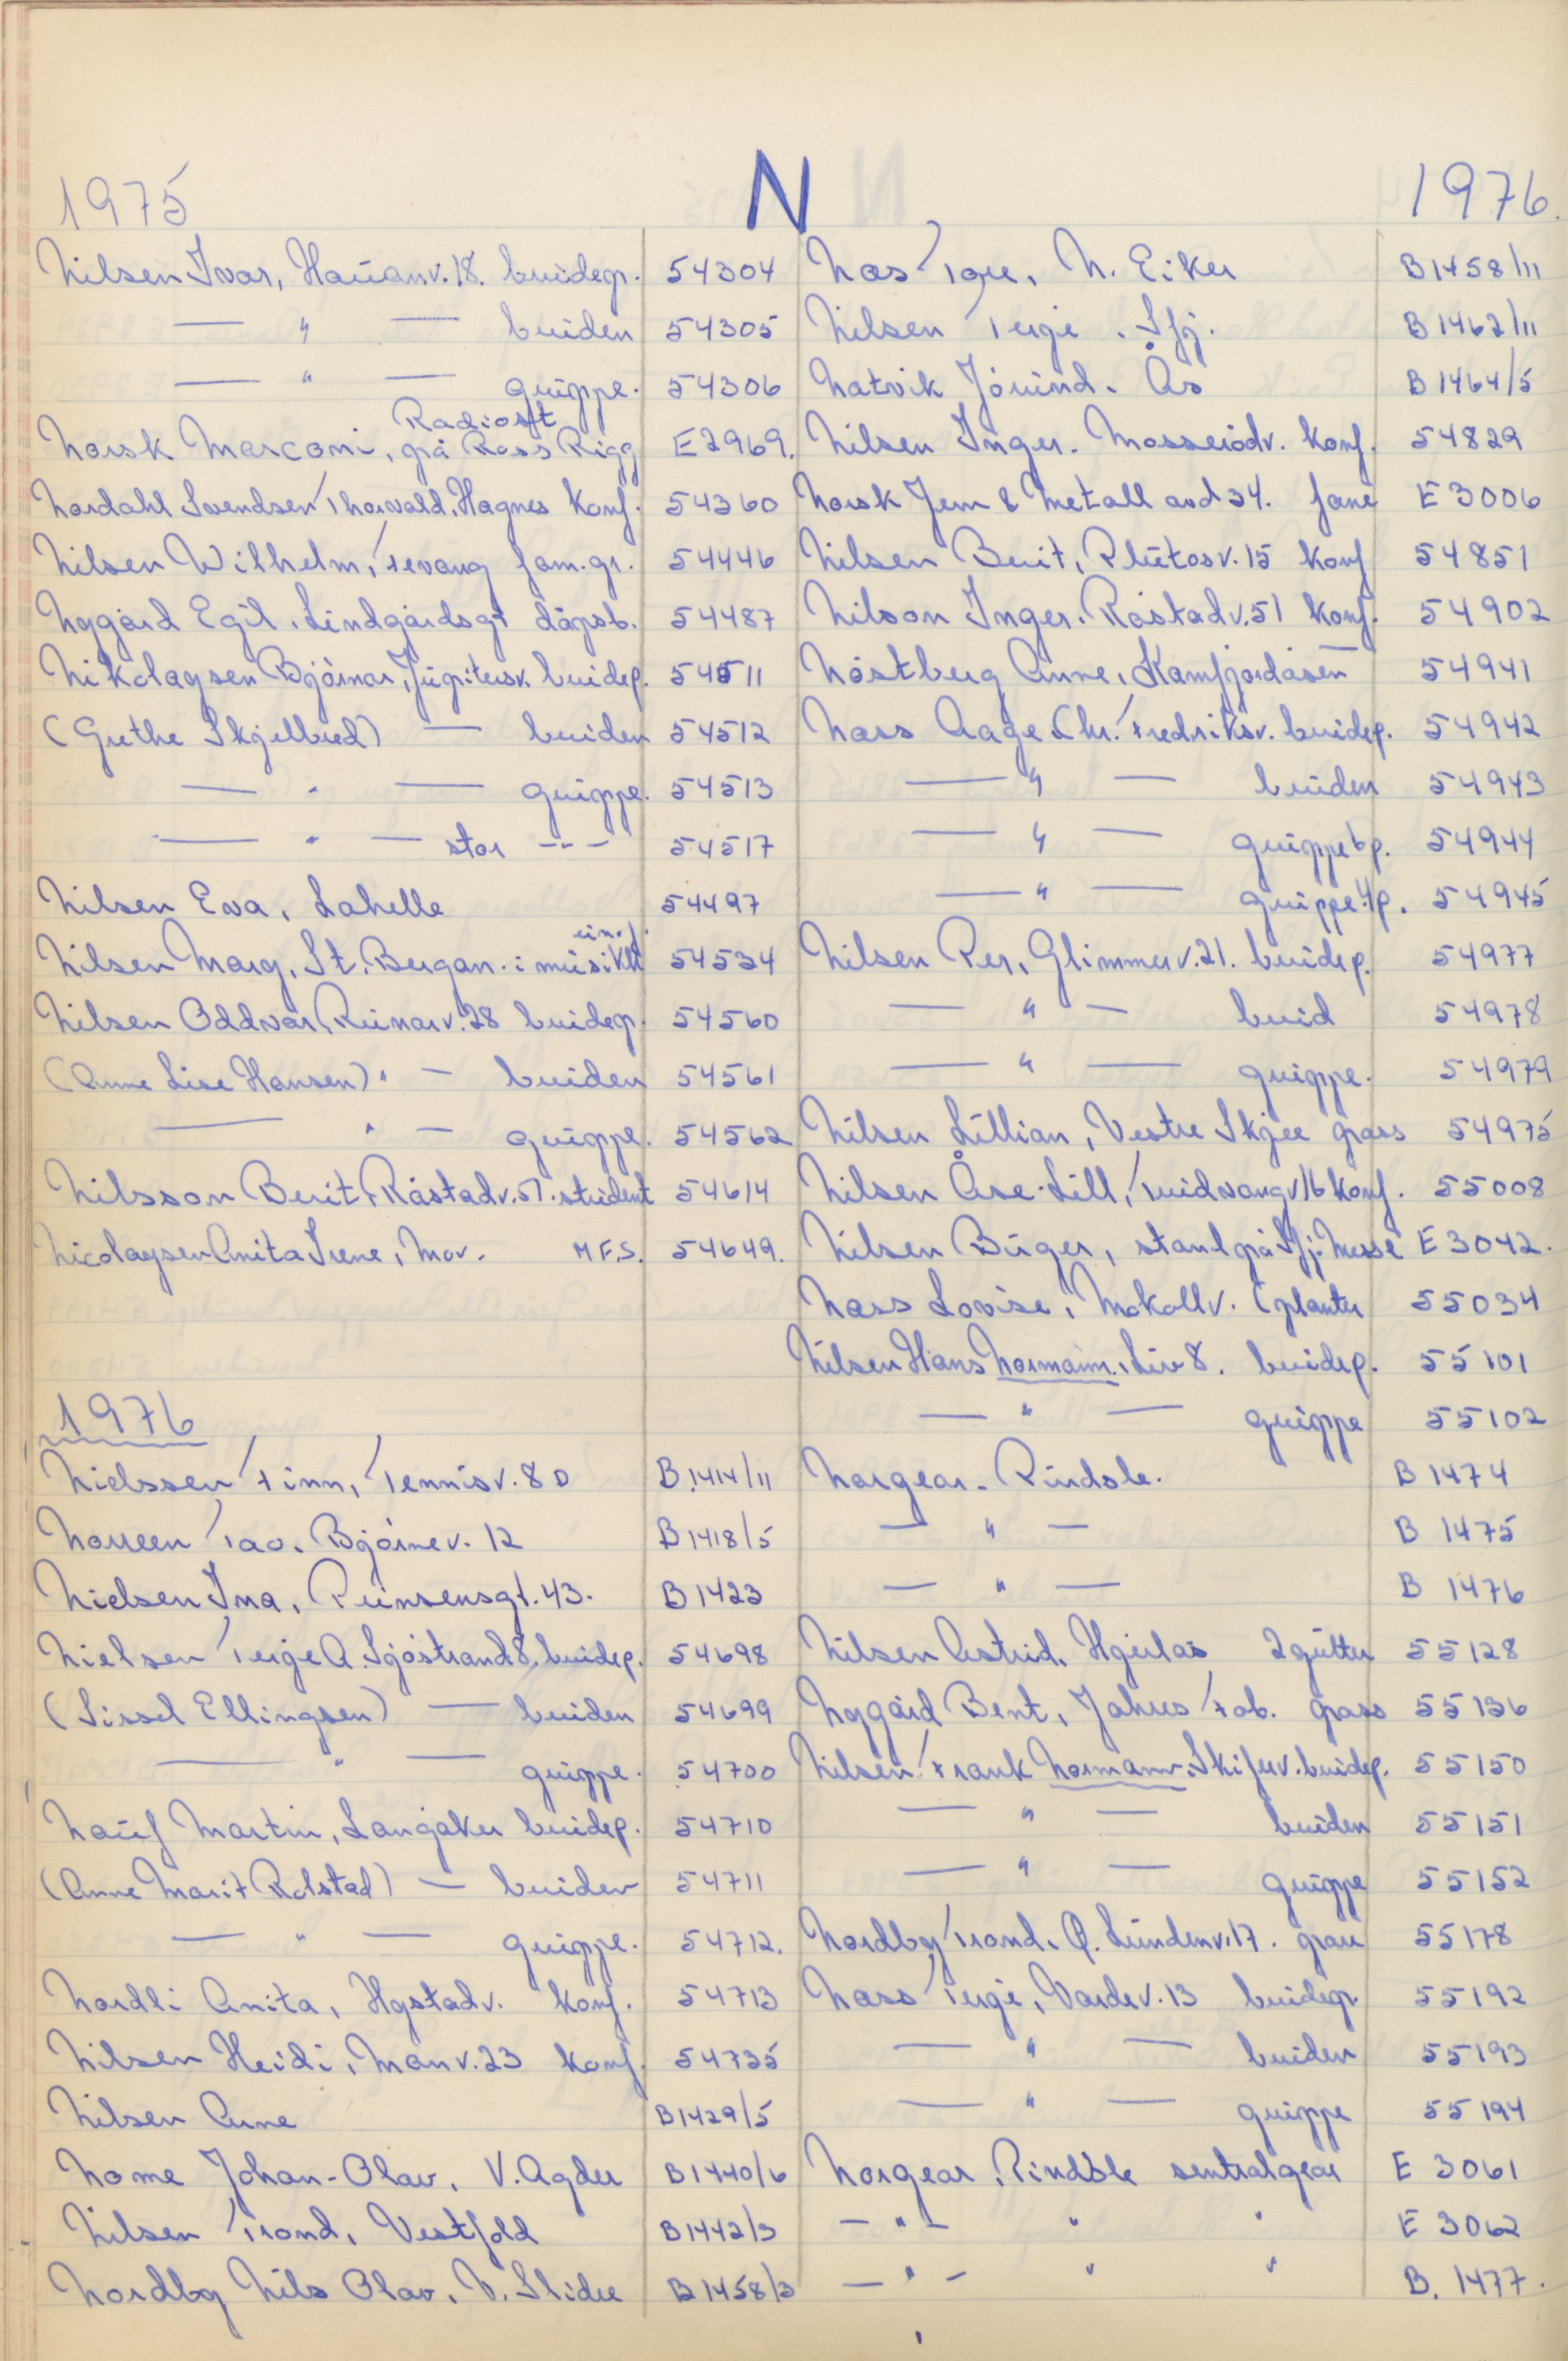 N
1975
Nilsen Ivar, Hauanv. 18. brudep. 54304
— " — bruden 54305
— " — gruppe. 54306
Radioskt
Norsk Marconi, på Ross Rigg E2969.
Nordahl Svendsen Thorvald, Hagnes konf. 54360
Nilsen Wilhelm, Tevang fam.gr. 54446
Nygård Egil, Lindgårdsgt dåpsb. 54487
Nikolaysen Bjørnar, Jupitersv. brudep. 54511
(Grethe Skjelbred) — bruden 54512
— " — gruppe. 54513
— " — stor -"- 54517
Nilsen Eva, Lahelle 54497
Nilsen Marg, St. Bergan. i musikk 54534
Nilsen Oddvar, Runarv. 28 brudep. 54560
(Anne Lise Hansen) " — bruden 54561
— " — gruppe. 54562
Nilsson Berit, Råstadv. 51. student 54614
Nicolaysen Anita Irene, Mov. M.F.S. 54649.
1976
Nielssen Finn, Tennisv. 8D B.1414/11
Norreen Tao. Bjørnev. 12 B1418/5
Nielsen Ina, Prinsensgt. 43. B1423
Nielsen Terje A. Sjøstrand 8, brudep. 54698
(Sissel Ellingsen) — bruden 54699
— " — gruppe. 54700
Nauf Martin, Langåker brudep. 54710
(Anne Marit Rolstad) — bruden 54711
— " — gruppe. 54712.
Nordli Anita, Hystadv. konf. 54713
Nilsen Heidi, Monv. 23 konf. 54735
Nilsen Rune B1429/5
Nome Johan-Olav, V. Agder B1440/6
Nilsen Trond, Vestfold B1442/3
Nordby Nils Olav, V. Slidre B1458/3
1976.
Næs Tore, N. Eiker B1458/11
Nilsen Terje, Sfj. B1462/11
Natvik Jövind. Ås B1464/5
Nilsen Inger. Mosserødv. konf. 54829
Norsk Jern & Metall avd 34. fane E3006
Nilsen Berit, Plutosv. 15 konf 54851
Nilson Inger. Råstadv. 51 konf. 54902
Nøstberg Anne, Kamfjordåsen 54941
Næss Aage Chr. Fredriksv. brudep. 54942
— " — bruden 54943
— " — gruppe 6p. 54944
— " — gruppe 4p. 54945
Nilsen Per, Glimmerv. 21. brudep. 54977
— " — brud 54978
— " — gruppe. 54979
Nilsen Lillian, Vestre Skjee pass 54975
Nilsen Åse-Lill, Tuidvangv 16 konf. 55008
Nilsen Birger, stand på Sfj. Messe E3042.
Næss Lovise, Mokollv. (planter 55034
Nilsen Hans Normann. Liv 8. brudep. 55101
— " — gruppe 55102
Norgear. Pindsle. B 1474
— " — B 1475
— " — B 1476
Nilsen Astrid, Hjerlås 2 gutter 55128
Nygård Bent, Jahres Fab. pass 55136
Nilsen Frank Normann. Skiferv. brudep. 55150
— " — bruden 55151
— " — gruppe 55152
Nordby Trond. Q. Lundenv. 17. pass 55178
Næss Terje, Vardev. 13 brudep. 55192
— " — bruden 55193
— " — gruppe 55194
Norgear, Pindsle sentralgear E 3061
— " — " " E 3062
— " — " " B. 1477.